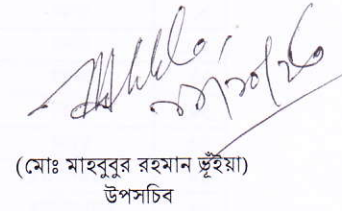 (মোঃ মাহবুবুর রহমান ভূঁইয়া)
উপসচিব